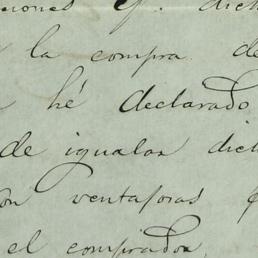 ciones q. dich
la compra de
hé declarado
de igualar dich
on ventajosas
el comprador,